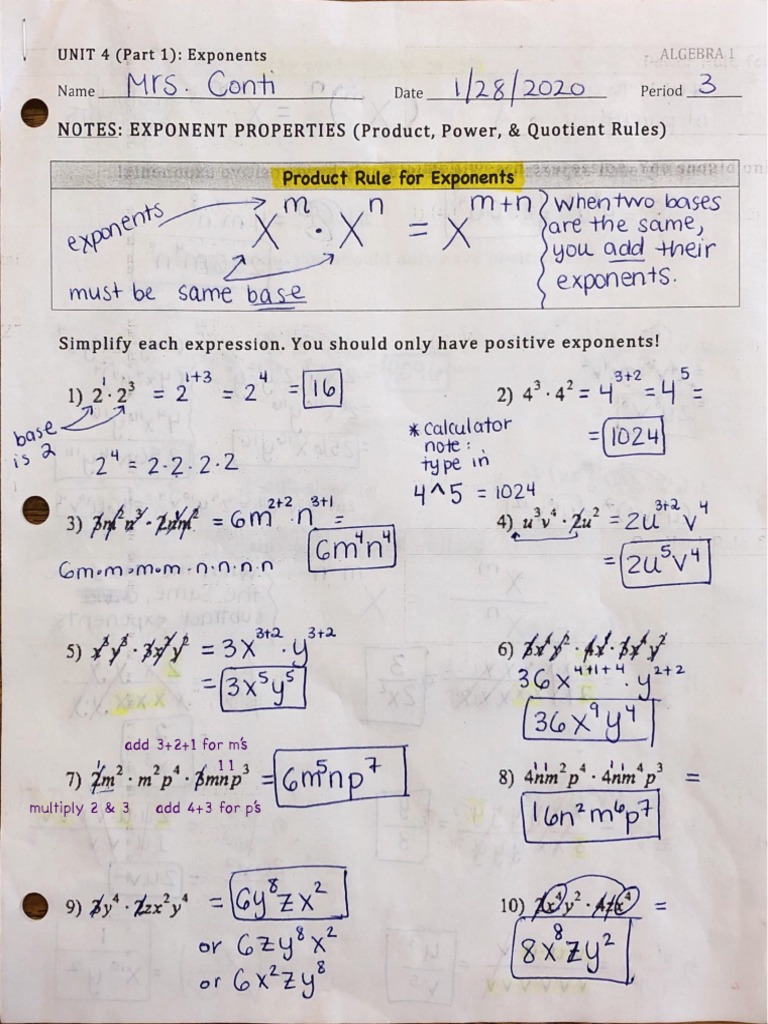 UNIT 4 (Part 1): Exponents ALGEBRA 1
Name Mrs. Conti Date 1/28/2020 Period 3
NOTES: EXPONENT PROPERTIES (Product, Power, & Quotient Rules)
Product Rule for Exponents
exponents
xᵐ · xⁿ = xᵐ⁺ⁿ
must be same base
when two bases
are the same,
you add their
exponents.
Simplify each expression. You should only have positive exponents!
1) 2¹ · 2³ = 2¹⁺³ = 2⁴ = 16
base
is 2
2⁴ = 2 · 2 · 2 · 2
2) 4³ · 4² = 4³⁺² = 4⁵ =
= 1024
* calculator
note:
type in
4^5 = 1024
3) = 6m²⁺² · n³⁺¹ =
6m⁴n⁴
6m·m·m·m·n·n·n·n
4) u³v⁴ · 2u² = 2u³⁺² v⁴
= 2u⁵v⁴
5) x³y³ · 3x²y² = 3x³⁺² · y³⁺²
= 3x⁵y⁵
6)
36x⁴⁺¹⁺⁴ · y²⁺²
36x⁹y⁴
add 3+2+1 for m's
7) · m²p⁴ · = 6m⁵np⁷
multiply 2 & 3 add 4+3 for p's
8) 4nm²p⁴ · 4nm⁴p³ =
16n²m⁶p⁷
9) 3y⁴ · 2zx²y⁴ = 6y⁸zx²
or 6zy⁸x²
or 6x²zy⁸
10) 2x⁴y² · 4zx⁴ =
8x⁸zy²